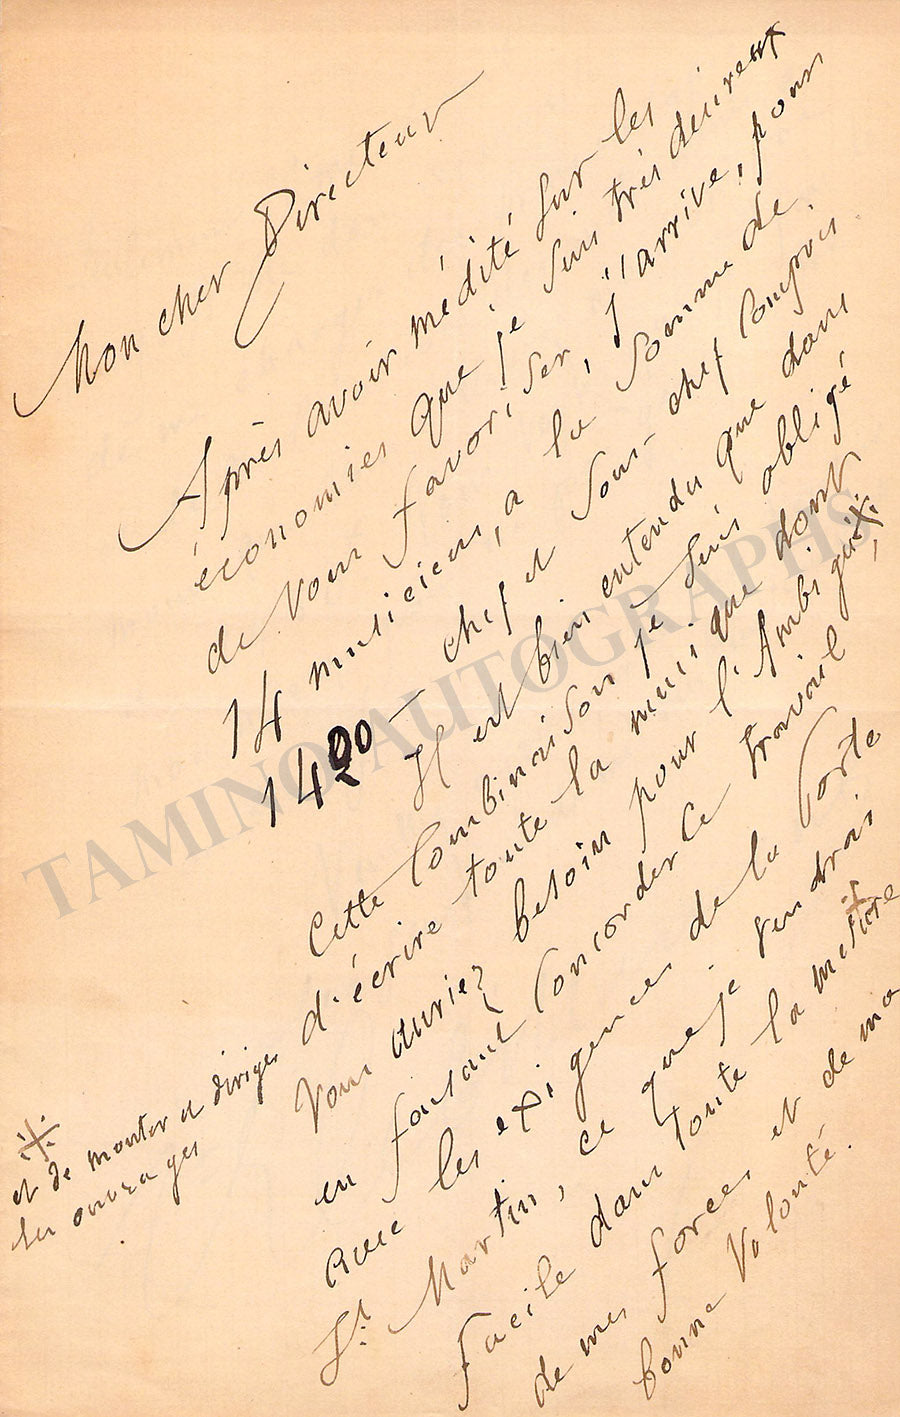 Mon cher Directeur
Après avoir médité sur les
économies que je suis très désireux
de vous favoriser, j'arrive, pour
14 musiciens, a la somme de
1400 – chef et sous-chef compris
Il est bien entendu que dans
Cette Combinaison je suis obligé
d'écrire toute la musique dont
Vous auriez besoin pour l'Ambigu ※,
en faisant Concorder ce travail
avec les exigences de la Porte
St Martin, ce que je rendrai
facile dans toute la mesure
de mes forces et de ma
bonne Volonté.
※
et de monter et diriger
les ouvrages
TAMINO AUTOGRAPHS